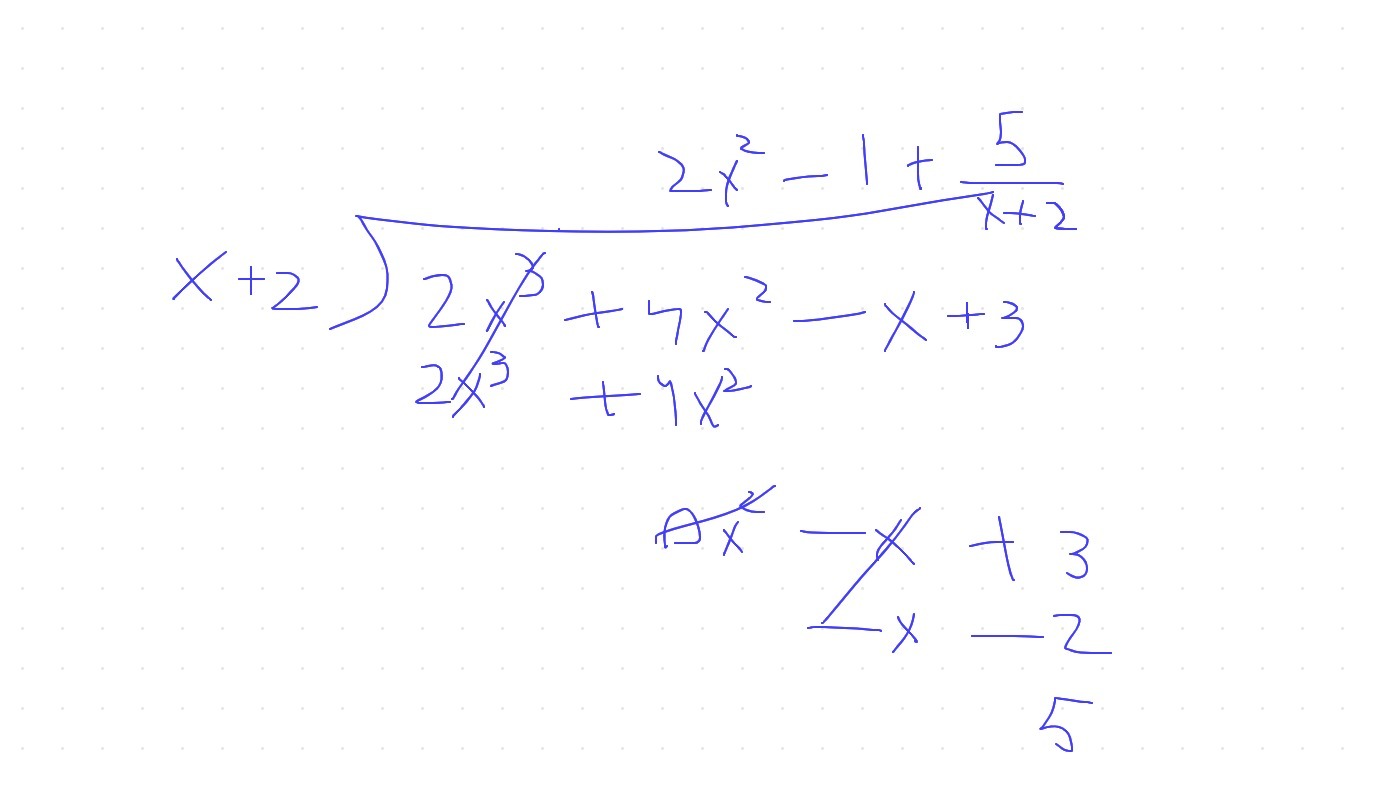 2x² - 1 + 5/(x+2)
x+2 ) 2x³ + 4x² - x + 3
2x³ + 4x²
0x² - x + 3
- x - 2
5